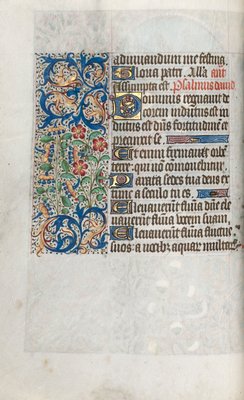 adiuuandum me festina
Gloria patri. Alla ant
Assumpta est. Psalmus dauid
Dominus regnauit de
corem indutus est in
dutus est dñs fortitudinem et
precinxit se
Etenim firmauit orbē
terre: qui nõ comouebitur
Parata sedes tua deus ex
tunc a seculo tu es.
Eleuauerūt flumīa dñe ele
uauerūt flumīa vocem suam.
Eleuauerūt flumīa fluctus
suos: a vocib9 aquar multar